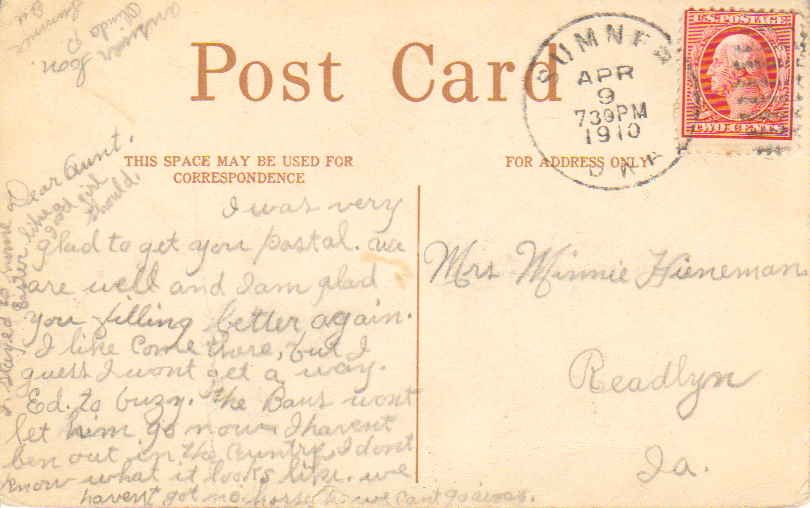 answer soon.
Linda P
Sumner
Post Card
SUMNER
APR
9
730PM
1910
IOWA
U.S. POSTAGE
TWO CENTS
THIS SPACE MAY BE USED FOR
CORRESPONDENCE
FOR ADDRESS ONLY
Dear Aunt.
I was very
glad to get you postal. we
are well and I am glad
you filling better again.
I like Come there, but I
guess I wont get a way.
Ed. to buzy. the Baus wont
let him go now I havent
ben out in the Cuntry, I dont
know what it looks like. we
havent got no horse so we cant go away.
I stayed to home
Easter like a
good girl
should.
Mrs Minnie Hieneman
Readlyn
Ia.